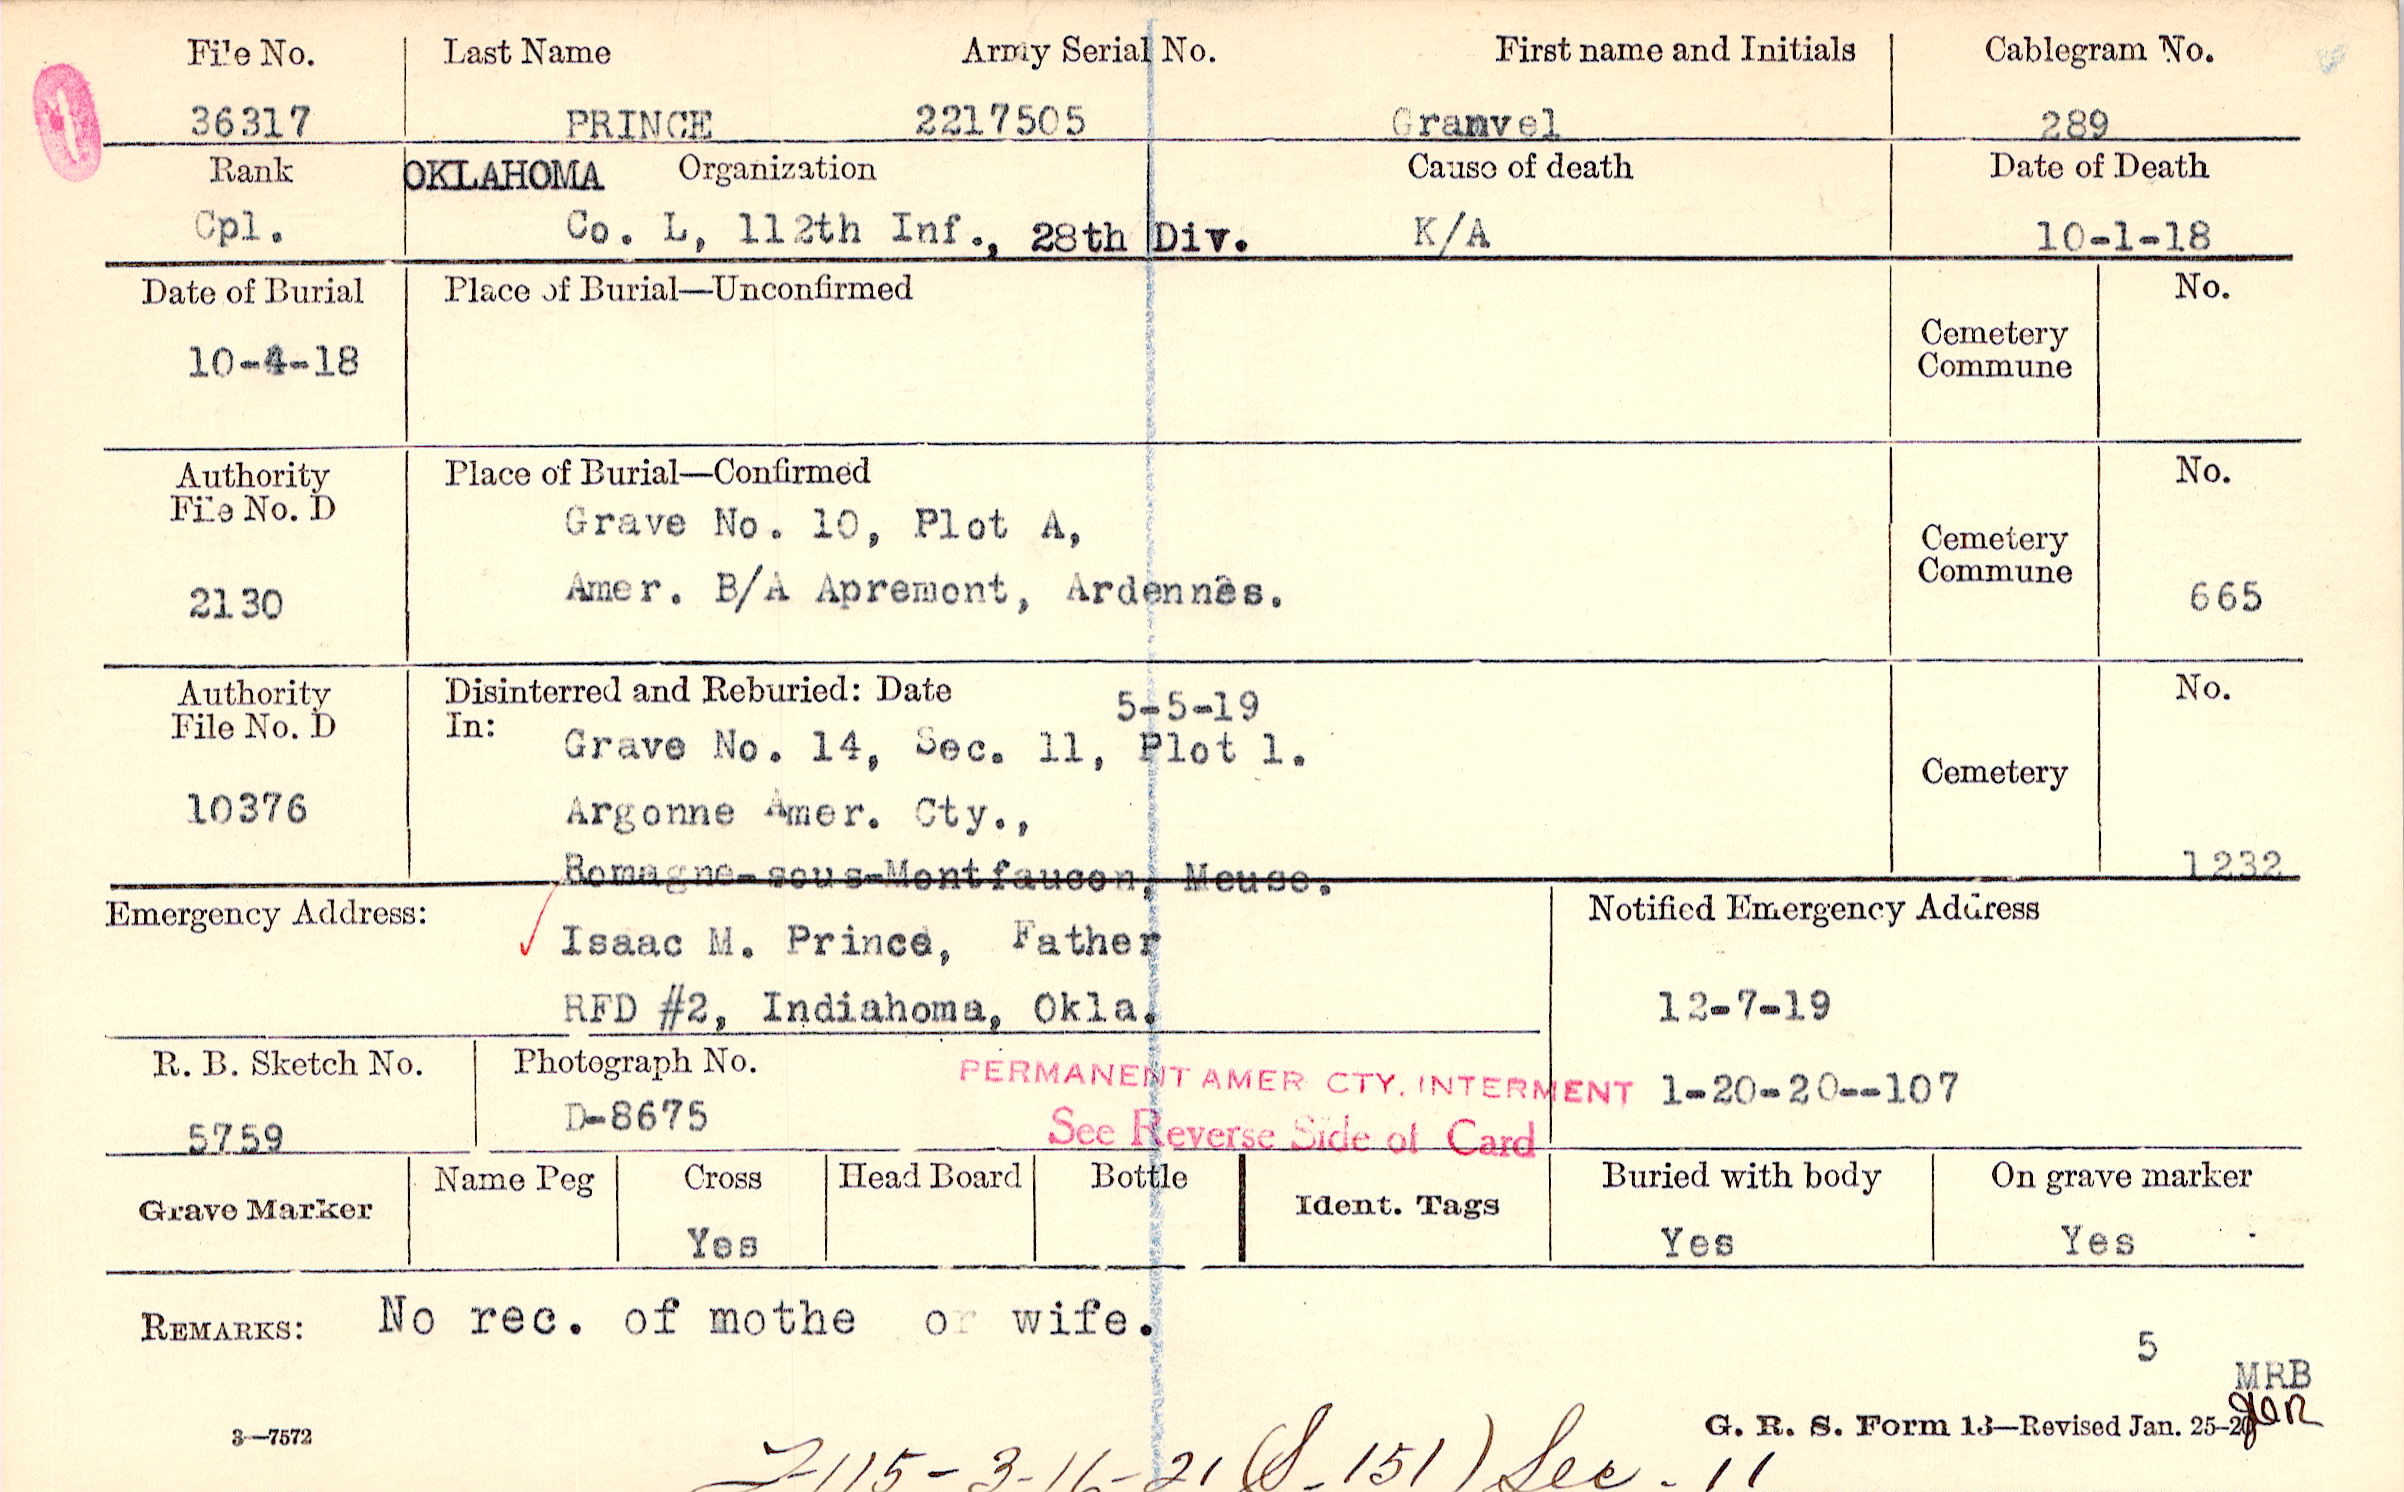 File No. Last Name Army Serial No. First name and Initials Cablegram No.
36317 PRINCE 2217505 Granvel 289
Rank OKLAHOMA Organization Cause of death Date of Death
Cpl. Co. L, 112th Inf., 28th Div. K/A 10-1-18
Date of Burial Place of Burial—Unconfirmed No.
10-4-18 Cemetery
Commune
Authority Place of Burial—Confirmed No.
File No. D
Grave No. 10, Plot A,
Cemetery
Commune
2130 Amer. B/A Apremont, Ardennès. 665
Authority Disinterred and Reburied: Date 5-5-19 No.
File No. D In:
Grave No. 14, Sec. 11, Plot 1.
Cemetery
10376 Argonne Amer. Cty.,
Romagne-sous-Montfaucon, Meuse. 1232
Emergency Address: Notified Emergency Address
Isaac M. Prince, Father
RFD #2, Indiahoma, Okla. 12-7-19
R. B. Sketch No. Photograph No. PERMANENT AMER CTY. INTERMENT 1-20-20--107
5759 D-8675 See Reverse Side of Card
Grave Marker Name Peg Cross Head Board Bottle Ident. Tags Buried with body On grave marker
Yes Yes Yes
REMARKS: No rec. of mothe or wife.
5
MRB
3—7572 G. R. S. Form 13—Revised Jan. 25-20
115-3-16-21 (S-151) Sec. 11